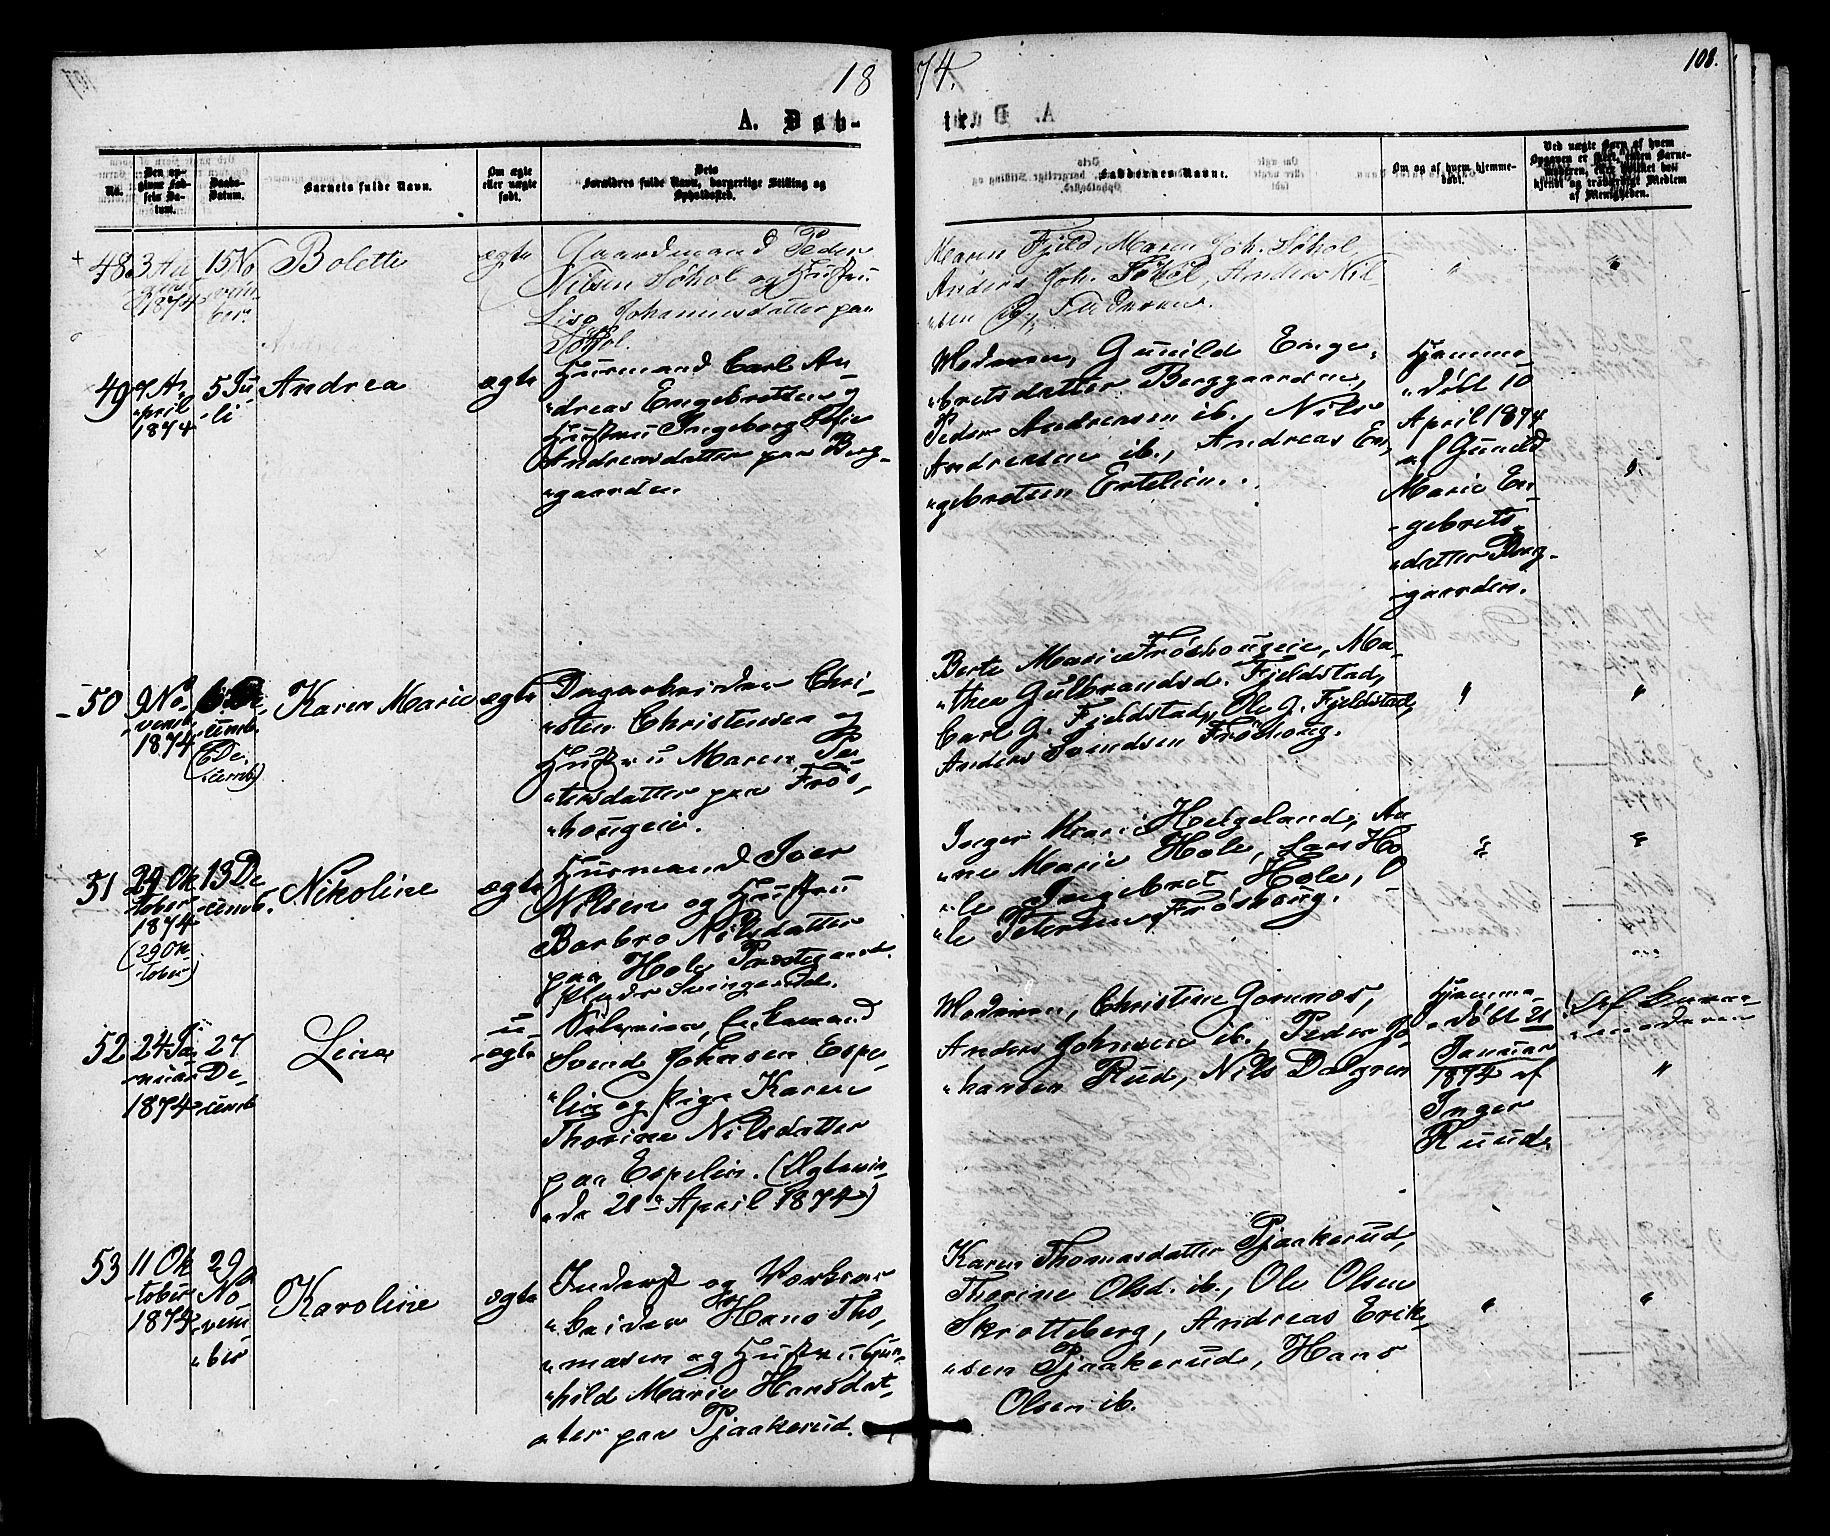 18
74.
108.
A. Døb-
te.
No.
Den op-
givne Fød-
sels Da-
tum.
Daabs-
Datum.
Barnets fulde Navn.
Om ægte
eller uægte
født.
Dets
Forældres fulde Navn, borgerlige Stilling og
Opholdssted.
Faddernes Navne.
Om og af hvem hjemme-
døbt.
Ved uægte Barn af hvem
Opgaven er skeet, enten Barne-
Moderen,
kjendt og troværdigt Medlem
af Menigheden.
48.
3 Au
gust
1874
15 No
vem-
ber.
Bolette
ægte
Gaardmand Peder
Nilsen Søhol og Hustru
Lise Johannesdatter paa
Søhol.
Maren Fjeld, Maren Joh. Søhol
Anders Joh. Søhol, Anders Nil-
"sen
"
"
49
7 A-
"pril
1874
5 Ju
-li
Andrea
ægte
Husmand Carl An-
"dreas Engebretsen og
Hustru Ingeborg Sofie
Andreasdatter paa Berg-
"gaarden.
Moderen, Gunild Enge-
"bretsdatter Berggaarden,
Peder Andreasen ib., Nils
Andreasen ib., Andreas En-
"gebretsen Ertelien.
Hjemme-
"døbt 10
April 1874
af Gunild
Marie En-
-gebrets-
"datter Berg-
-gaarden.
"
50
9 No-
-vemb.
1874
6 De-
-cemb.
(6 De-
cemb)
Karen Marie
ægte
Dagarbeider Chri-
"sten Christensen og
Hustru Maren Pe-
"tersdatter paa Frøs-
"hougeie.
Berte Marie Frøshougeie, Ma-
"thea Gulbrandsd. Fjeldstad,
Carl G. Fjeldstad, Ole G. Fjeldstad,
Anders Svendsen Frøshoug.
"
"
51
29 Ok
-tober
1874
(29 Ok-
-tober)
13 De
-cemb.
Nikoline
ægte
Husmand Iver
Nilsen og Hustru
Barbro Nilsdatter
paa Hole Præstegaard
Inger Marie Helgeland, An-
"ne Marie Hole, Lars Ho
"le, Ingebret Hole, O
"le Petersen Frøshoug.
"
"
52
24 Ja-
-nuar
1874
27
De-
-cemb
Lina
u-
-ægte
Selveier, Enkemand
Svend Johnsen Espe-
"lien og Pige Karen
Thorine Nilsdatter
paa Espelien. (Ægtevi-
"de 21de April 1874)
Moderen, Christine Gomnæs,
Anders Johnsen ib., Peder Jo-
"hansen Rud, Nils Dalgren
Hjemme-
"døbt 21
Januar
1874 af
Inger
Ruud.
Af Barne-
"moderen
"
53
11 Ok
-tober
1874
29
No
-vem-
"ber
Karoline
ægte
Inderst og Værksar-
"beider Hans Tho-
"masen og Hustru Gun-
"hild Marie Hansdat-
"ter paa Pjaakerud.
Karen Thomasdatter Pjaakerud,
Thorine Olsd. ib., Ole Olsen
Skrotteberg, Andreas Erik-
"sen Pjaakerud, Hans
Olsen ib.
"
"